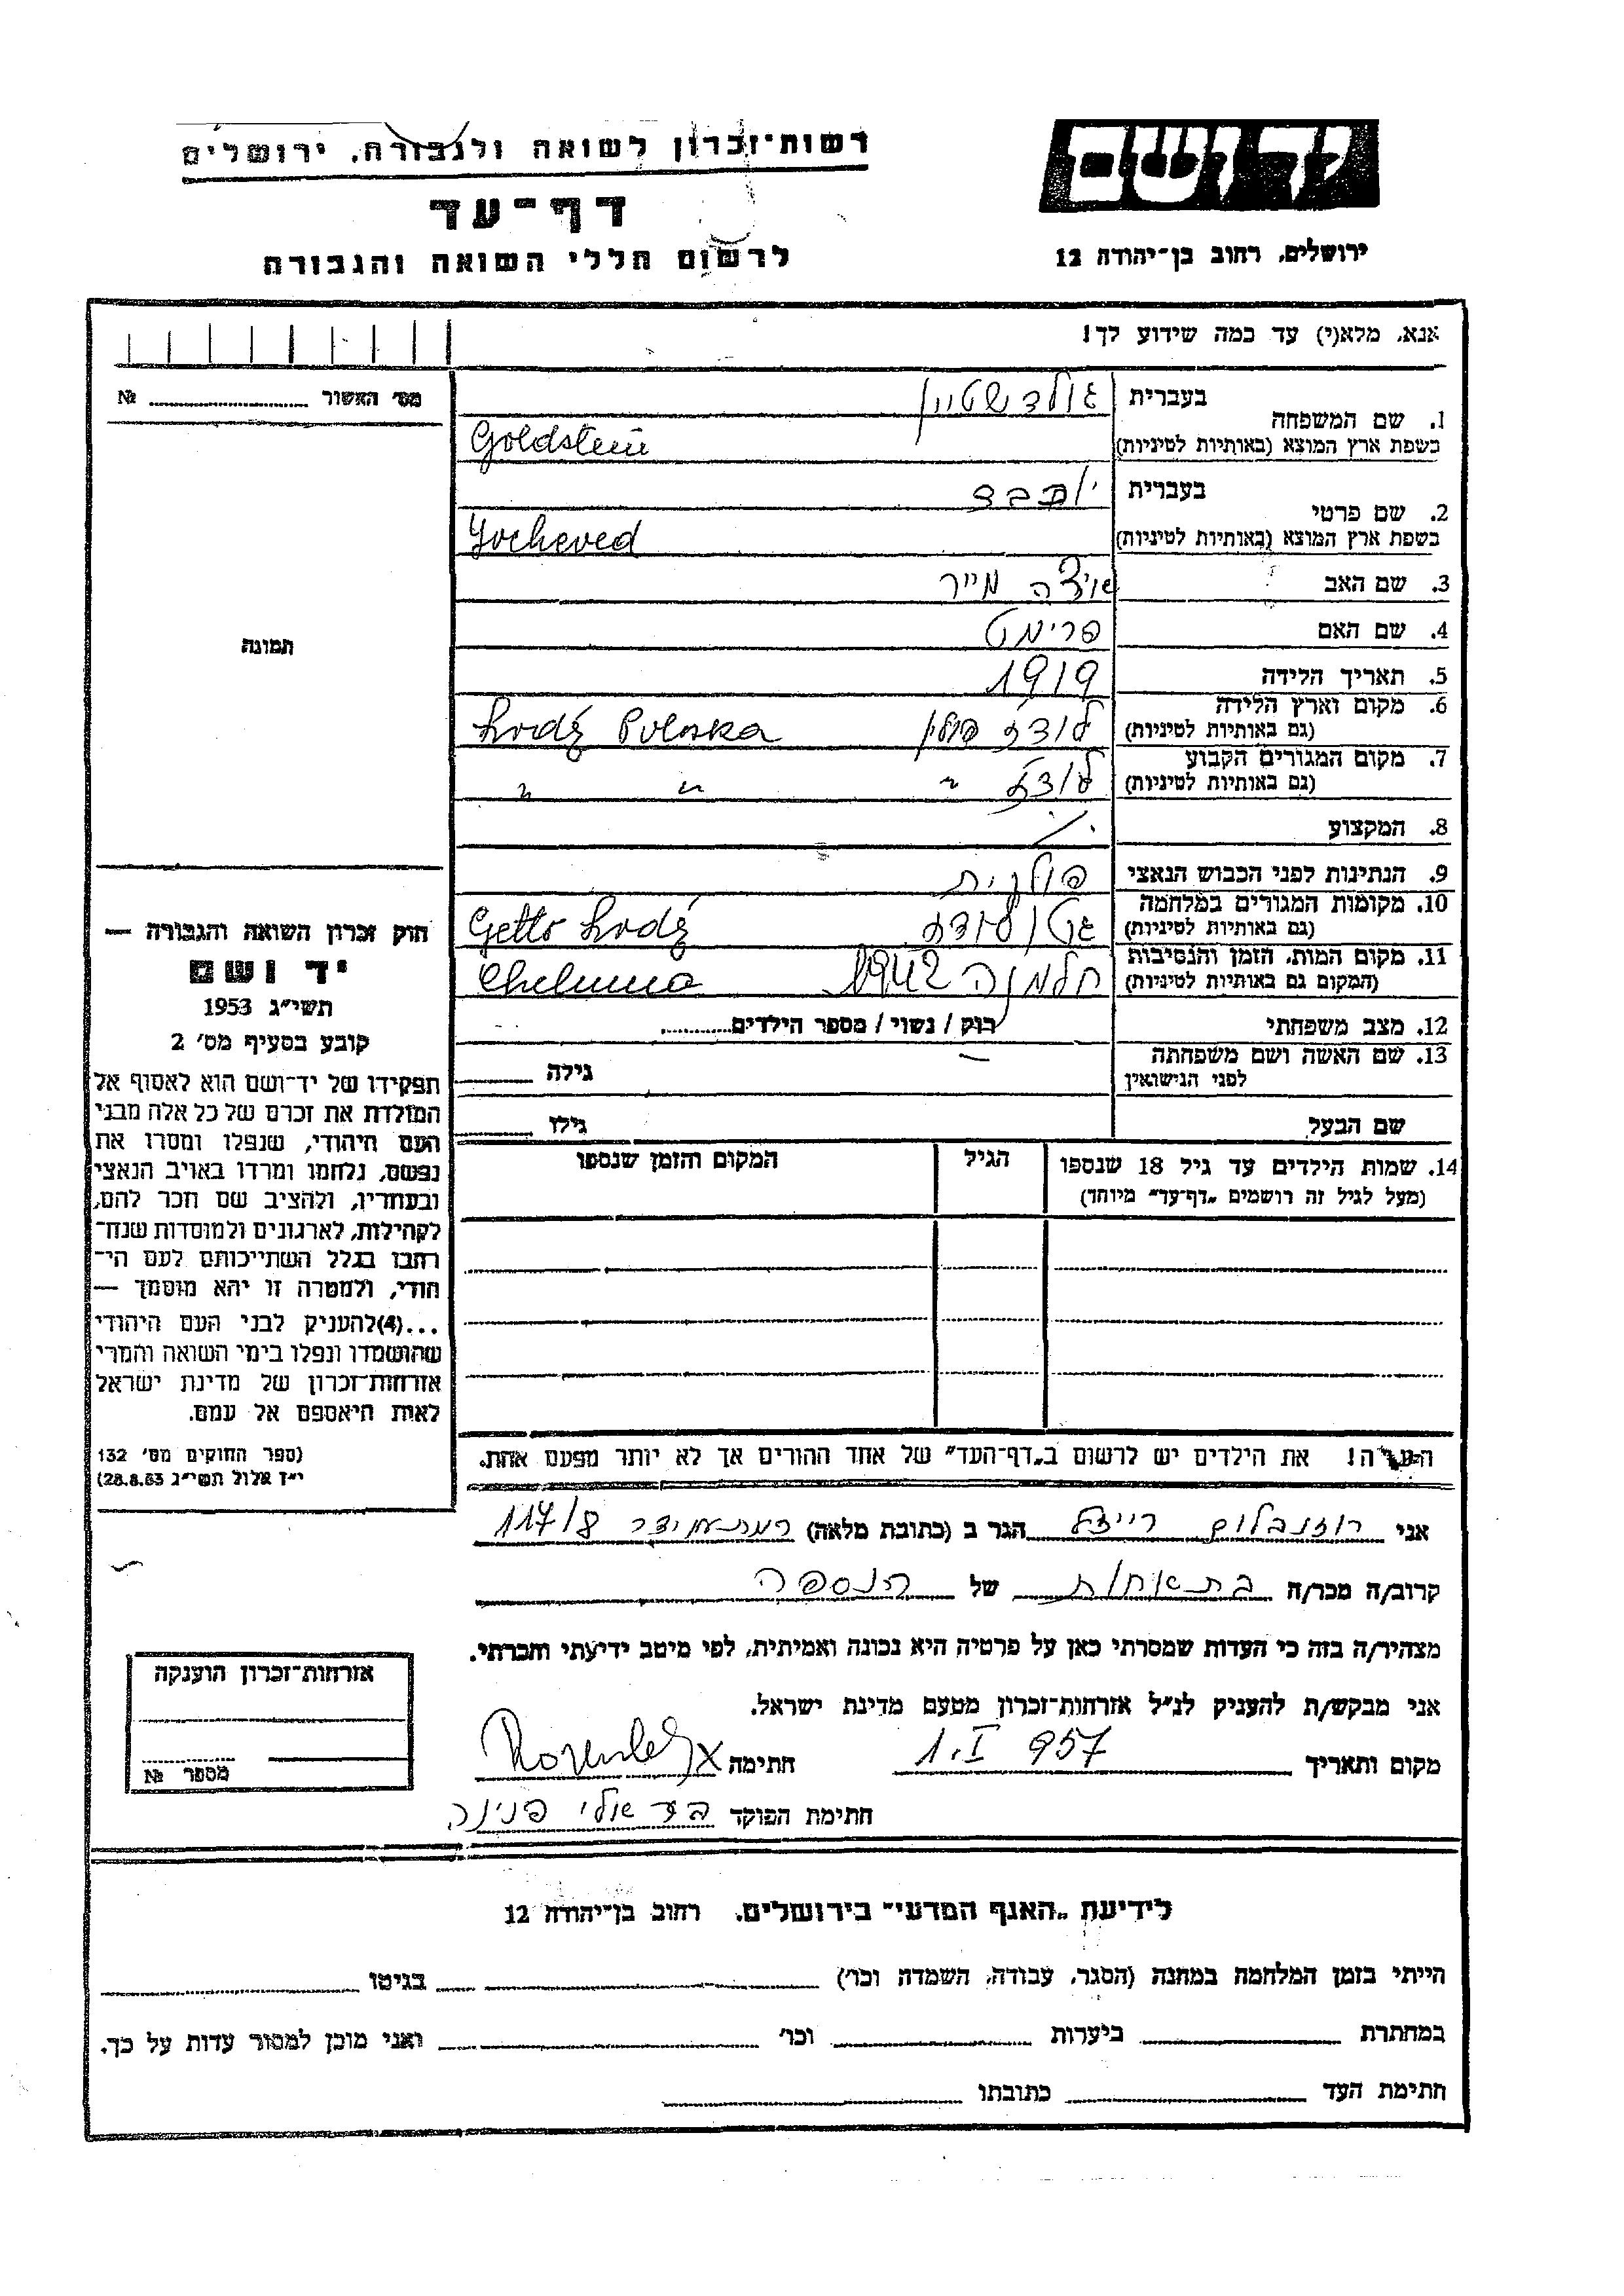 רשות־זכרון לשואה ולגבורה, ירושלים
דף־עד
לרשום חללי השואה והגבורה
יד ושם
ירושלים, רחוב בן־יהודה 12
אנא, מלא(י) עד כמה שידוע לך!
מס׳ האשור № 
1. שם המשפחה
בעברית גולדשטיין
בשפת ארץ המוצא (באותיות לטיניות) Goldstein
2. שם פרטי
בעברית יוכבד
בשפת ארץ המוצא (באותיות לטיניות) Yocheved
3. שם האב מייר
4. שם האם פרימט
5. תאריך הלידה 1919
6. מקום וארץ הלידה
(גם באותיות לטיניות) לודז׳ פולין Lodź Polska
7. מקום המגורים הקבוע
(גם באותיות לטיניות) לודז׳ " " "
8. המקצוע ./.
9. הנתינות לפני הכבוש הנאצי פולנית
10. מקומות המגורים במלחמה
(גם באותיות לטיניות) גטו לודז׳ Getto Lodź
11. מקום המות, הזמן והנסיבות
(המקום גם באותיות לטיניות) חלמנה 1942 Chelmno
12. מצב משפחתי רוק / נשוי / מספר הילדים
13. שם האשה ושם משפחתה
לפני הנישואין — גילה
שם הבעל גילו
14. שמות הילדים עד גיל 18 שנספו
(מעל לגיל זה רושמים „דף־עד״ מיוחד)
הגיל
המקום והזמן שנספו
הערה! את הילדים יש לרשום ב„דף־העד״ של אחד ההורים אך לא יותר מפעם אחת.
תמונה
חוק זכרון השואה והגבורה —
יד ושם
תשי״ג 1953
קובע בסעיף מס׳ 2
תפקידו של יד־ושם הוא לאסוף אל
המולדת את זכרם של כל אלה מבני
העם היהודי, שנפלו ומסרו את
נפשם, נלחמו ומרדו באויב הנאצי
ובעוזריו, ולהציב שם וזכר להם,
לקהילות, לארגונים ולמוסדות שנח־
רבו בגלל השתייכותם לעם הי־
הודי, ולמטרה זו יהא מוסמך —
...(4)להעניק לבני העם היהודי
שהושמדו ונפלו בימי השואה והמרי
אזרחות־זכרון של מדינת ישראל
לאות היאספם אל עמם.
(ספר החוקים מס׳ 132
י״ז אלול תשי״ג 28.8.53)
אני רוזנבלום רייזל הגר ב (כתובת מלאה) 117/8
קרוב/ה מכר/ה בת אחות של הנספה
מצהיר/ה בזה כי העדות שמסרתי כאן על פרטיה היא נכונה ואמיתית, לפי מיטב ידיעתי והכרתי.
אני מבקש/ת להעניק לנ״ל אזרחות־זכרון מטעם מדינת ישראל.
מקום ותאריך 1.I 957 חתימה x
חתימת הפוקד פנינה
אזרחות־זכרון הוענקה
מספר №
לידיעת „האגף המדעי״ בירושלים, רחוב בן־יהודה 12
הייתי בזמן המלחמה במחנה (הסגר, עבודה, השמדה וכו׳) בגיטו
במחתרת ביערות וכו׳ ואני מוכן למסור עדות על כך.
חתימת העד כתובתו